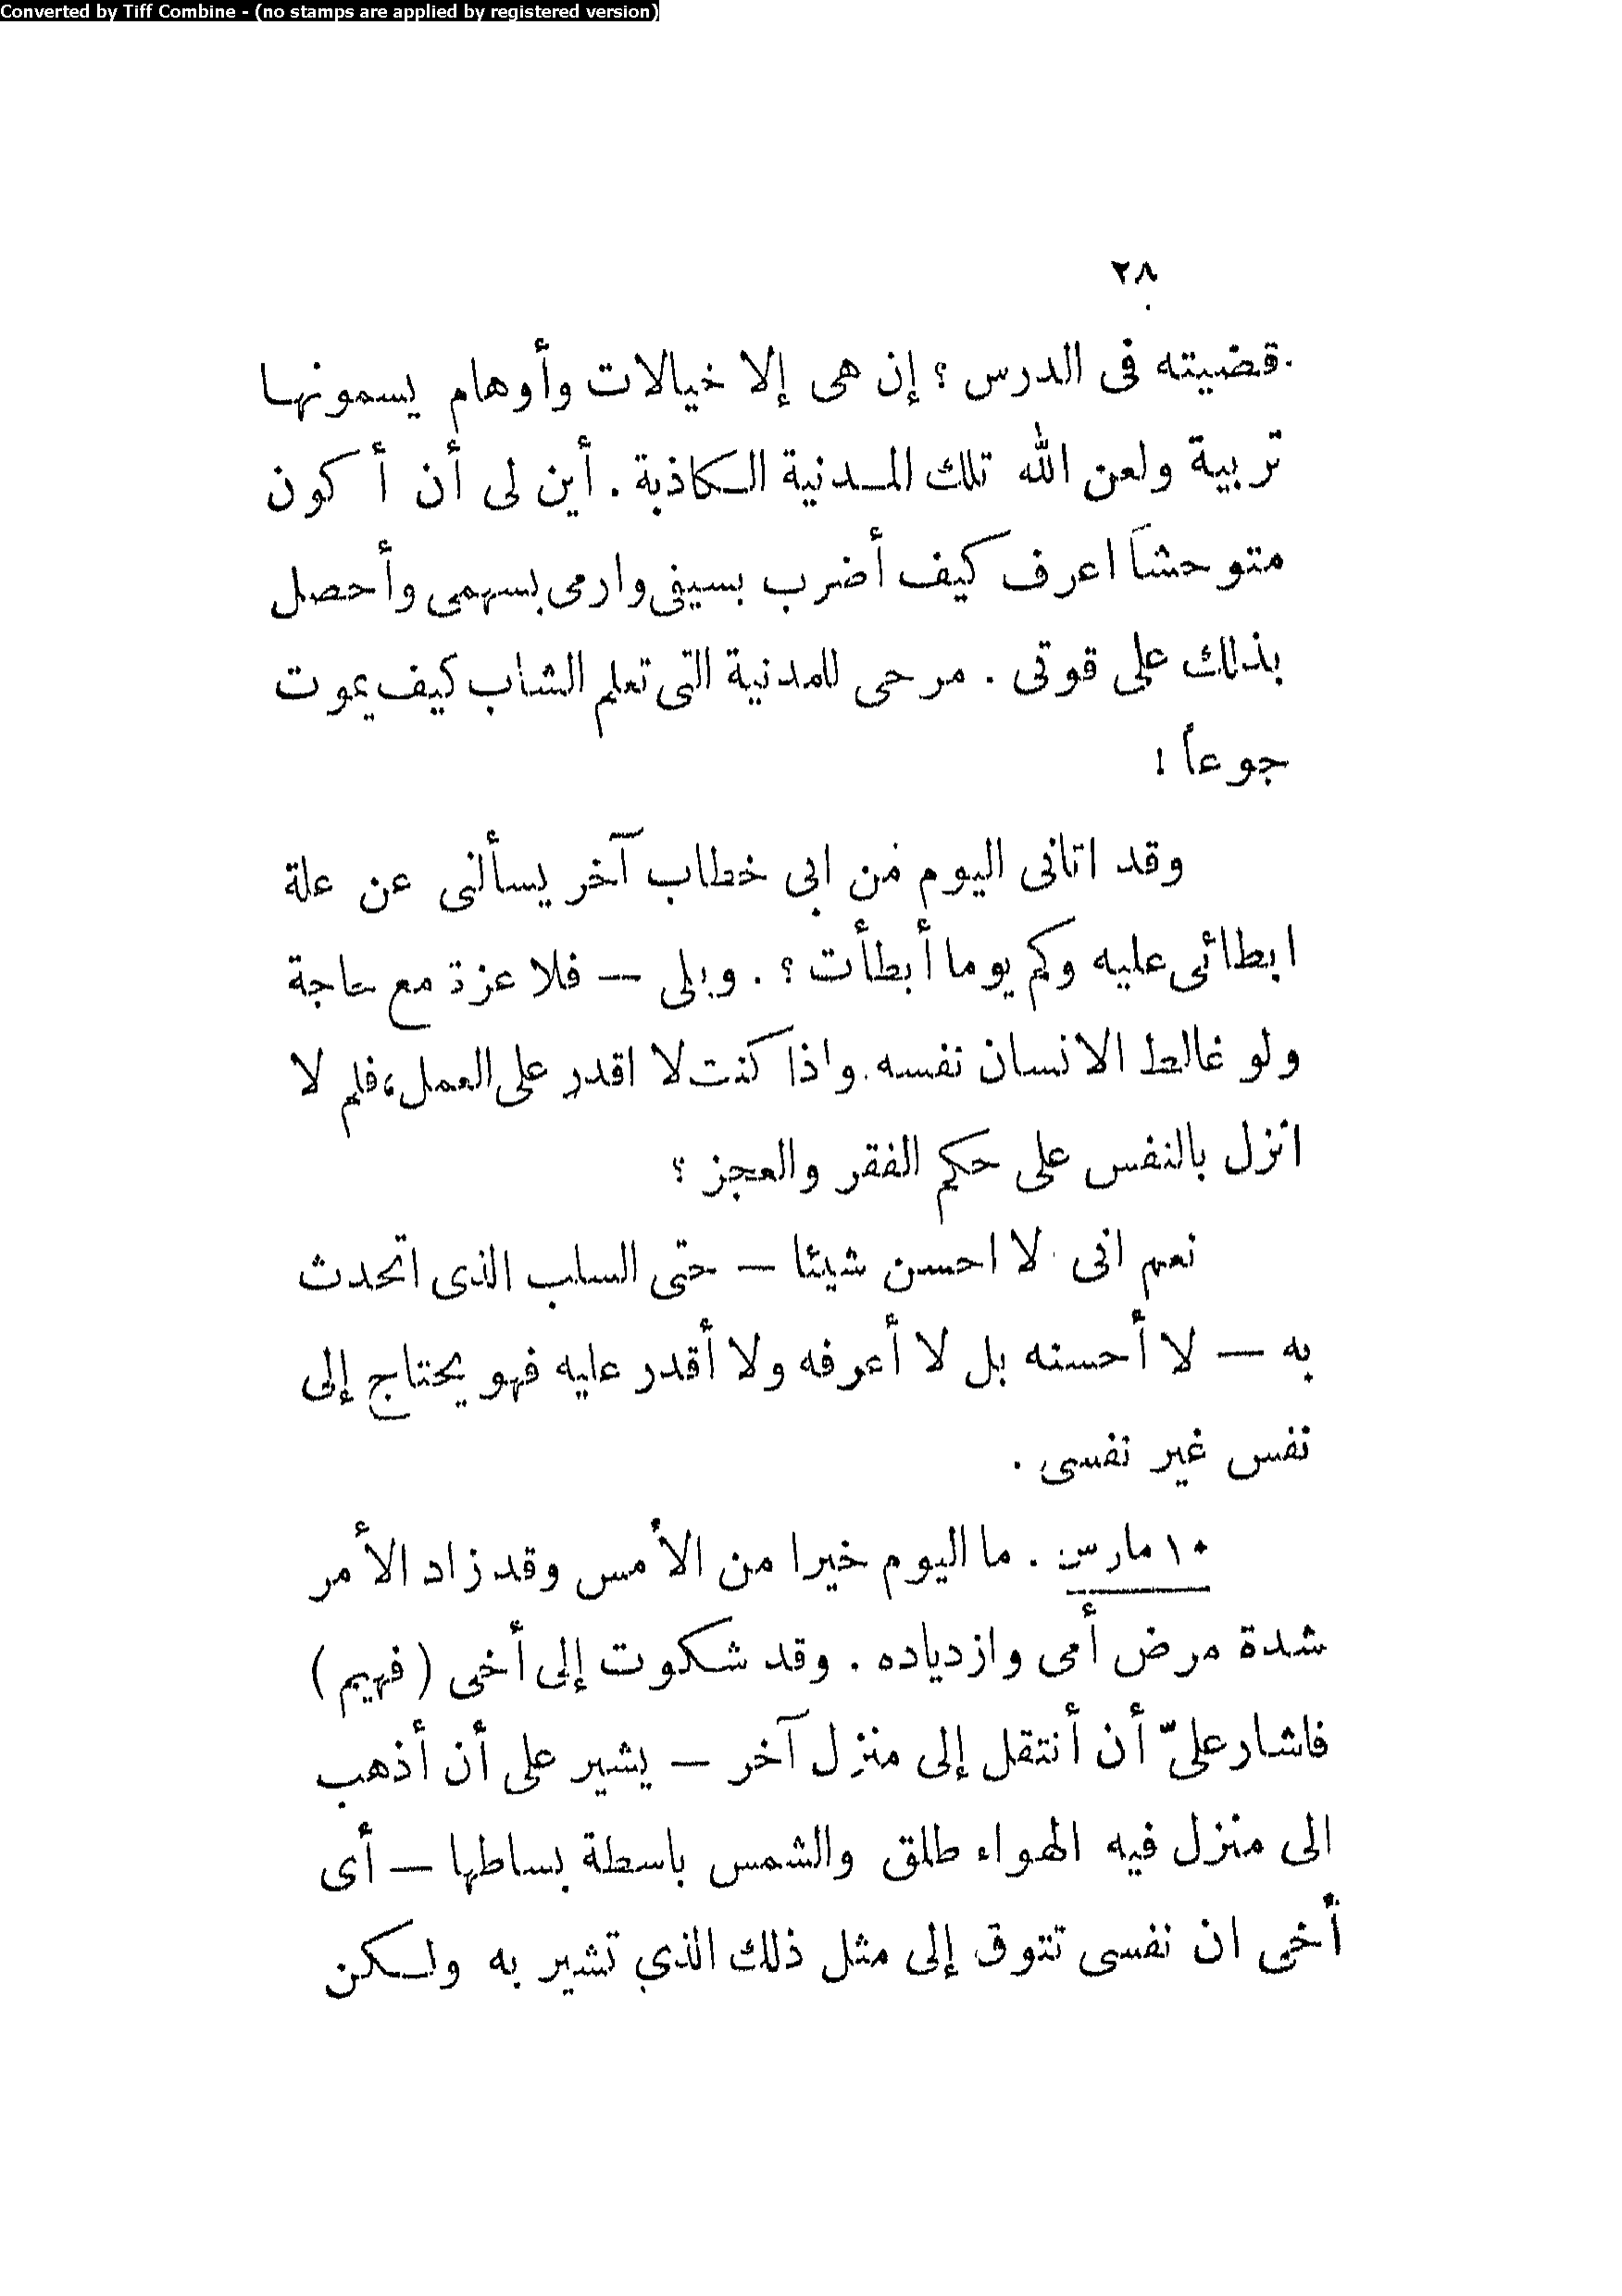 Converted by Tiff Combine - (no stamps are applied by registered version)
٢٨
قضيته فى الدرس ؟ إن هى إلا خيالات وأوهام يسمونها
تربية ولعن الله تلك المدنية الكاذبة . أين لى أن أكون
متوحشاً اعرف كيف أضرب بسيفى وارمى بسهمى وأحصل
بذلك على قوتى . مرحى للمدنية التى تعلم الشاب كيف يموت
جوعاً !
وقد اتانى اليوم من ابى خطاب آخر يسألنى عن علة
ابطائى عليه وكم يوما أبطأت ؟ . ويلى — فلا عزة مع حاجة
ولو غالط الانسان نفسه . واذا كنت لا اقدر على العمل ، فلم لا
انزل بالنفس على حكم الفقر والعجز ؟
نعم انى لا احسن شيئا — حتى السلب الذى اتحدث
به — لا أحسنه بل لا أعرفه ولا أقدر عليه فهو يحتاج إلى
نفس غير نفسى .
١٠ مارس . ما اليوم خيرا من الأمس وقد زاد الأمر
شدة مرض أمى وازدياده . وقد شكوت إلى أخى ( فهيم )
فاشار علىّ أن أنتقل إلى منزل آخر — يشير على أن أذهب
الى منزل فيه الهواء طلق والشمس باسطة بساطها — أى
أخى ان نفسى تتوق إلى مثل ذلك الذي تشير به ولكن